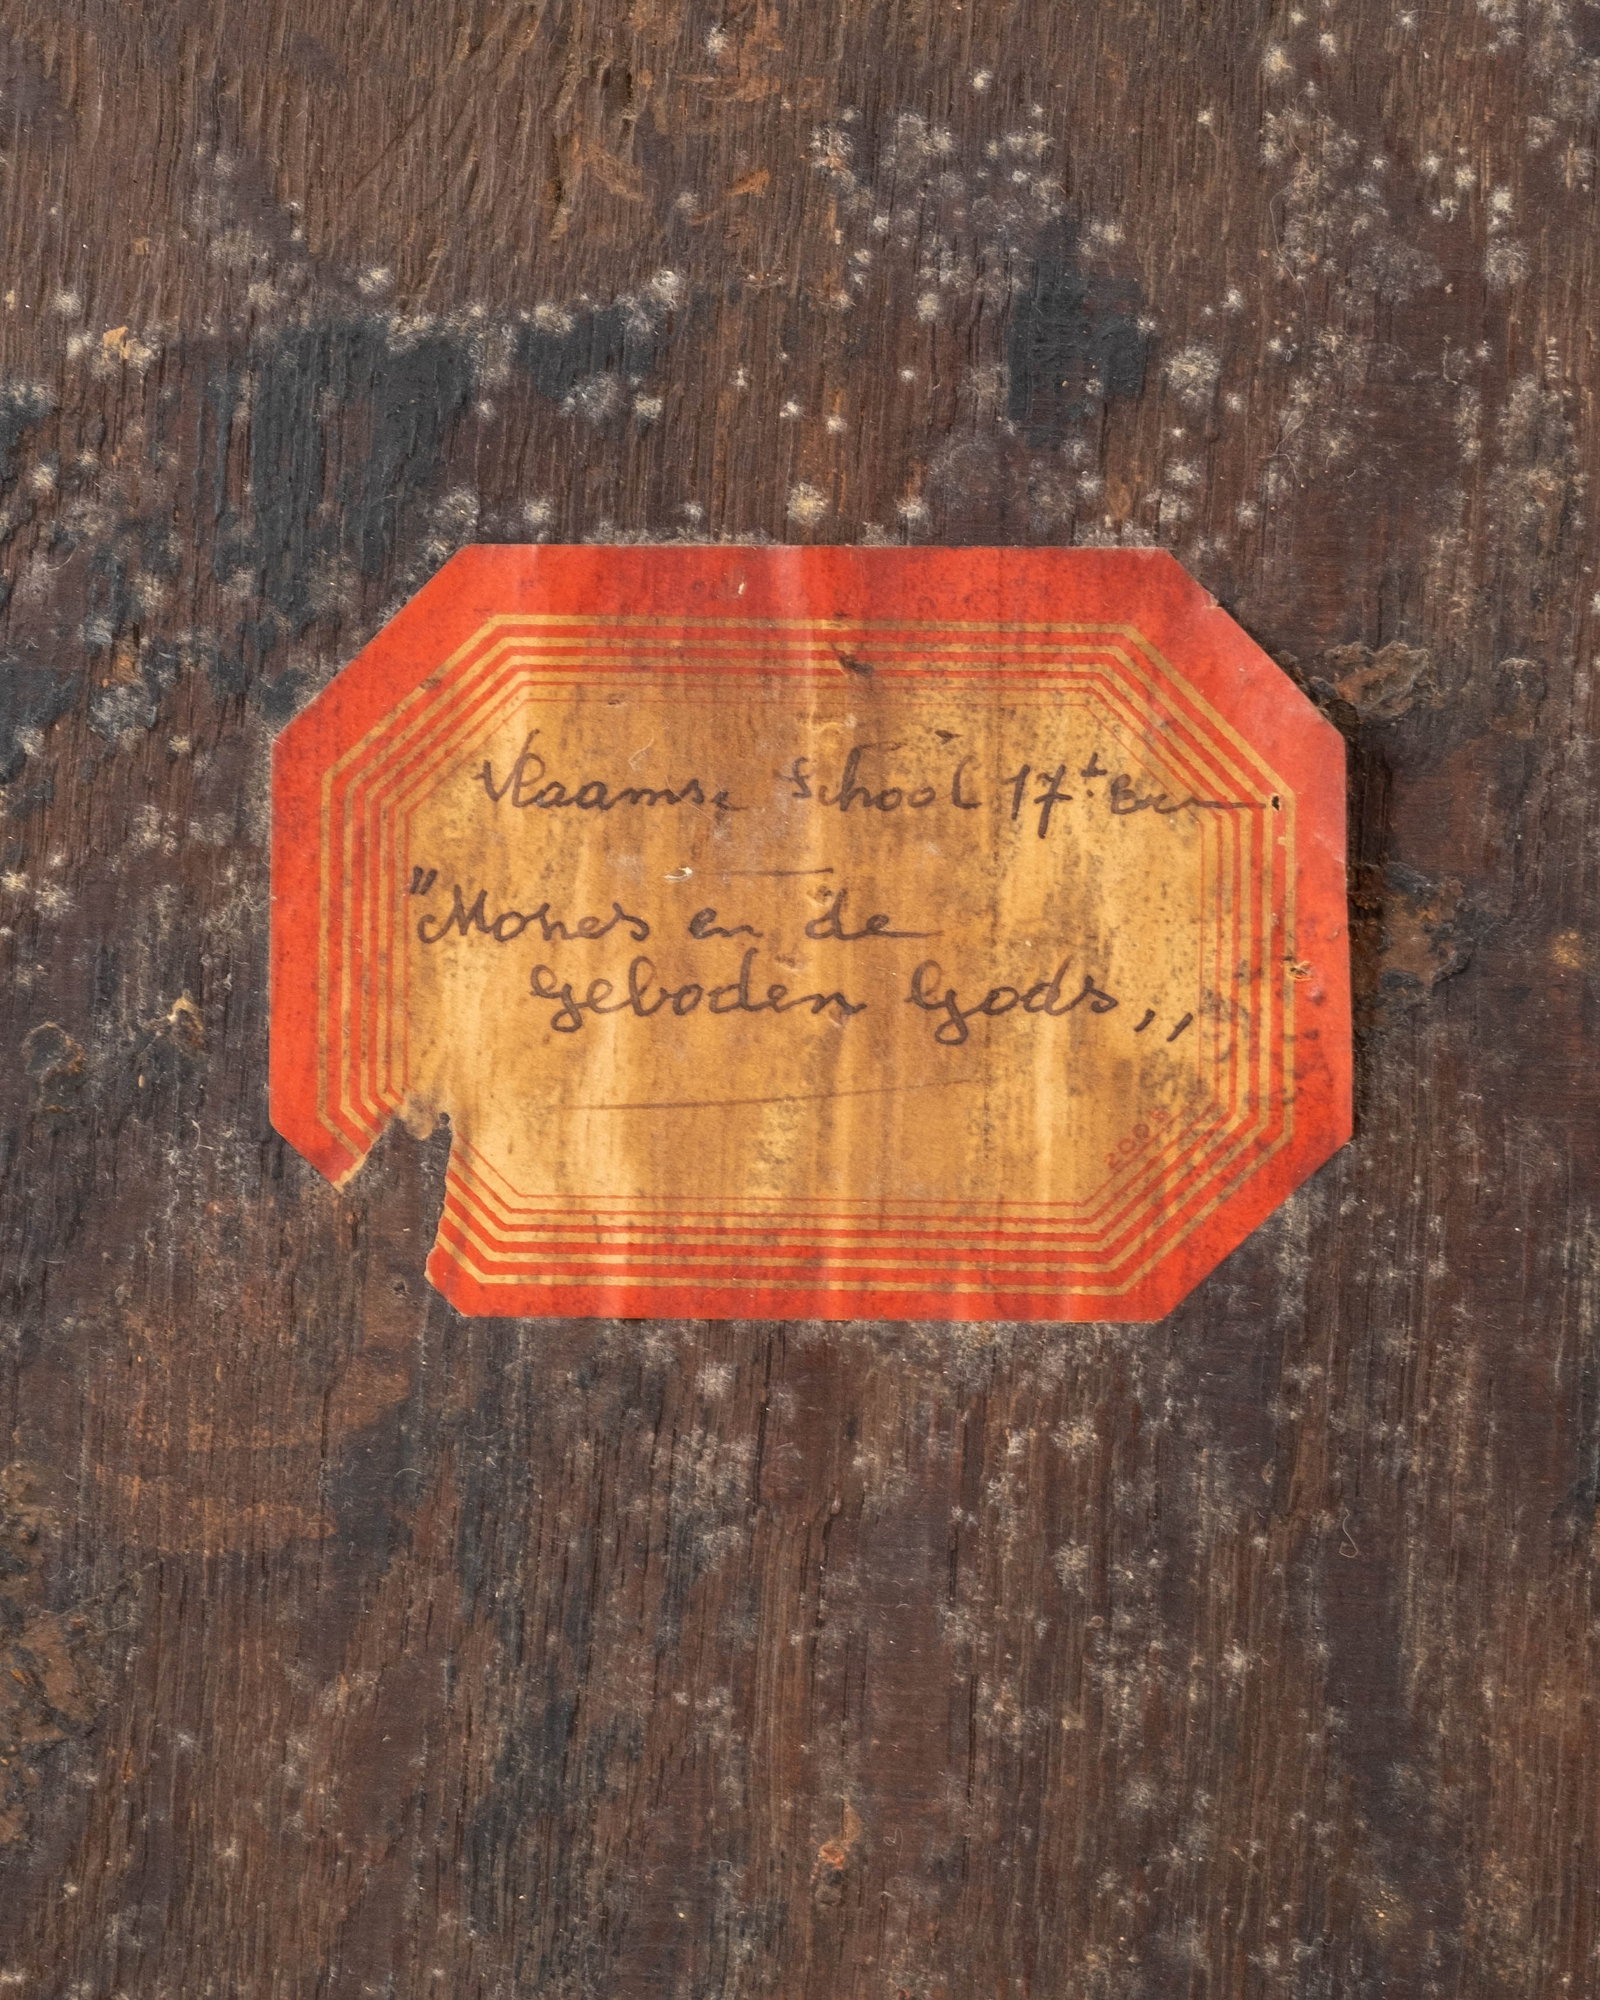 Vlaamse School 17de Eeuw
"Mozes en de
Geboden Gods,,